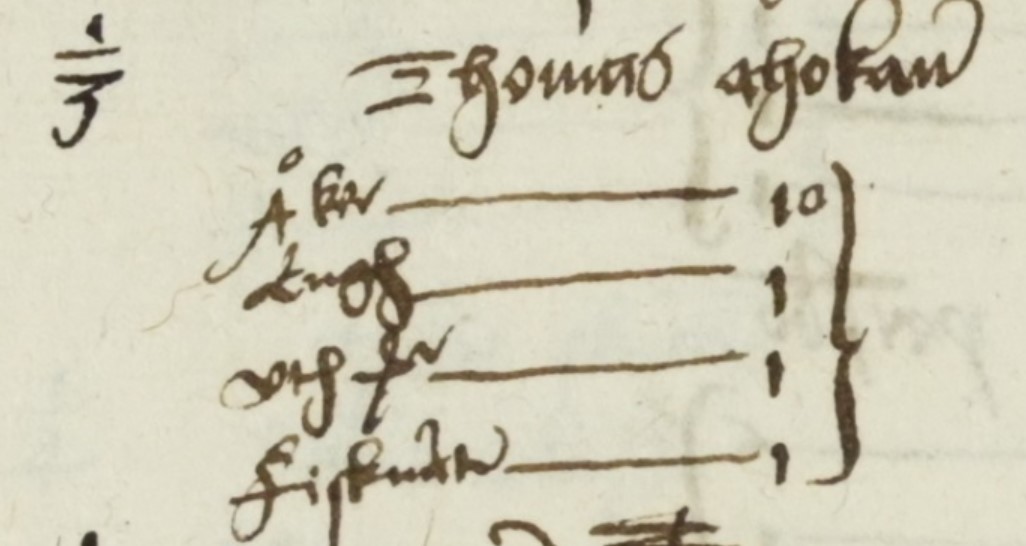 1/3 Thomas ahokain
Åker 10
Engh 1
vth fr 1
Fiskuater 1